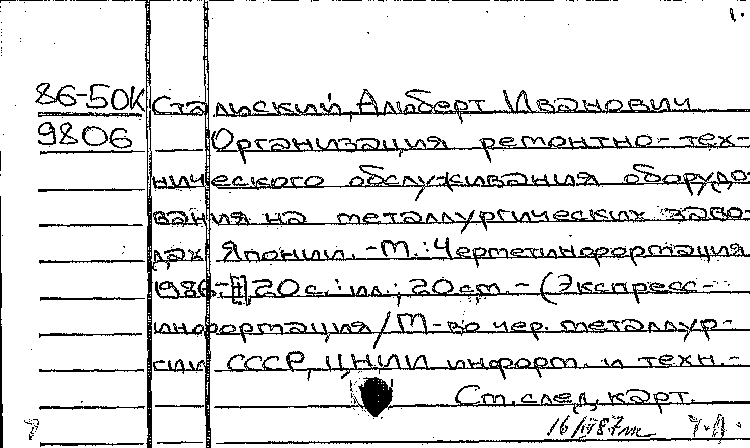 1.
86-50К Стальский, Альберт Иванович
9806 Организация ремонтно-тех-
нического обслуживания оборудо-
вания на металлургических заво-
дах Японии. -М.: Черметинформация
1986.- 20 с.: ил.; 20 см. - (Экспресс-
информация / М-во чер. металлур-
гии СССР, ЦНИИ информ. и техн.-
Ст. след. карт.